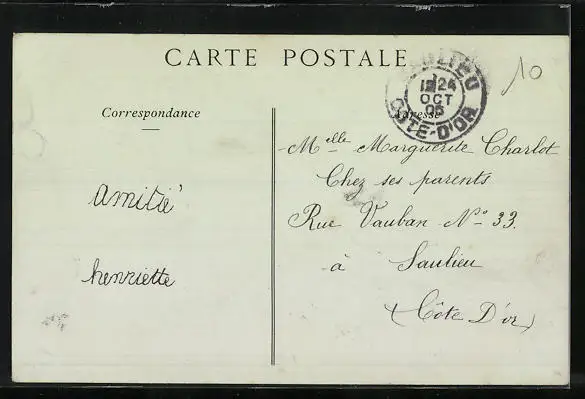 CARTE POSTALE
Correspondance
Adresse
SAULIEU
12 24
OCT
05
CÔTE-D'OR
10
amitié
henriette
Melle Marguerite Charlot
Chez ses parents
Rue Vauban No 33.
à Saulieu
(Côte D'or)